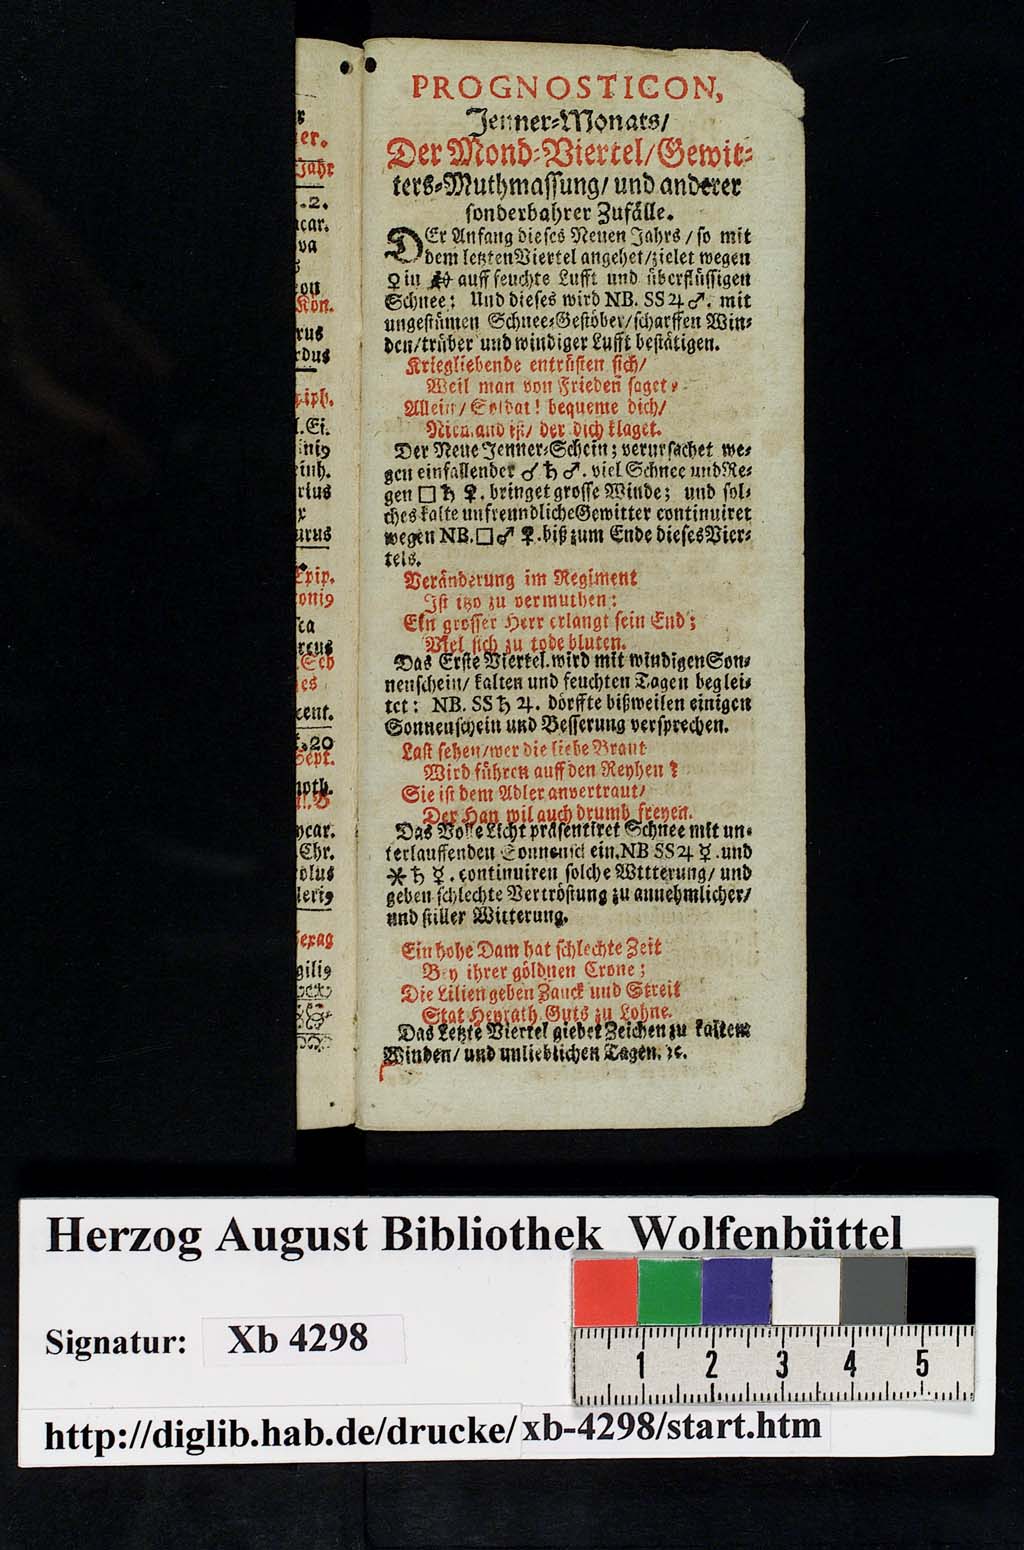 PROGNOSTICON,
Jenner-Monats/
Der Mond-Viertel/Gewit-
ters-Muthmassung/ und anderer
sonderbahrer Zufälle.
DEr Anfang dieses Neuen Jahrs / so mit
dem letzten Viertel angehet/zielet wegen
♀ in auff feuchte Lufft und überflüssigen
Schnee: Und dieses wird NB. SS ♃ ♂. mit
ungestümen Schnee-Gestöber/scharffen Win-
den/trüber und windiger Lufft bestätigen.
Kriegliebende entrüsten sich/
Weil man von Frieden saget,
Allein/ Soldat! bequeme dich/
Niemand ist/ der dich klaget.
Der Neue Jenner-Schein; verursachet we-
gen einfallender ☌ ♄ ♂. viel Schnee und Re-
gen □ ♄ ☿. bringet grosse Winde; und sol-
ches kalte unfreundliche Gewitter continuiret
wegen NB. □ ♂ ☿. biß zum Ende dieses Vier-
tels.
Veränderung im Regiment
Ist itzo zu vermuthen:
Ein grosser Herr erlangt sein End;
Viel sich zu tode bluten.
Das Erste Viertel. wird mit windigen Son-
nenschein/ kalten und feuchten Tagen beglei-
tet: NB. SS ♄ ♃. dörffte bißweilen einigen
Sonnenschein und Besserung versprechen.
Last sehen/wer die liebe Braut
Wird führen auff den Reyhen?
Sie ist dem Adler anvertraut/
Der Han wil auch drumb freyen.
Das Volle Licht präsentiret Schnee mit un-
terlauffenden Sonnenschein, NB SS ♃ ☿. und
⚹ ♄ ☿. continuiren solche Wttterung/ und
geben schlechte Vertröstung zu annehmlicher/
und stiller Witterung.
Ein hohe Dam hat schlechte Zeit
Bey ihrer göldnen Crone;
Die Lilien geben Zanck und Streit
Stat Heyrath Guts zu Lohne.
Das Letzte Viertel giebet Zeichen zu kaltem
Winden/ und unlieblichen Tagen. ꝛc.
Herzog August Bibliothek Wolfenbüttel
Signatur: Xb 4298
1 2 3 4 5
http://diglib.hab.de/drucke/xb-4298/start.htm